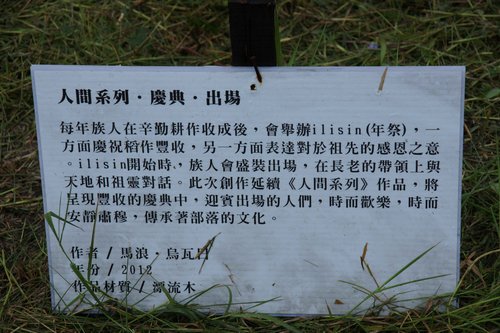 人間系列・慶典・出場
每年族人在辛勤耕作收成後，會舉辦ilisin(年祭)，一
方面慶祝稻作豐收，另一方面表達對於祖先的感恩之意
。ilisin開始時，族人會盛裝出場，在長老的帶領上與
天地和祖靈對話。此次創作延續《人間系列》作品，將
呈現豐收的慶典中，迎賓出場的人們，時而歡樂，時而
安靜肅穆，傳承著部落的文化。
作者/馬浪・烏瓦
年份/2012
作品材質/漂流木